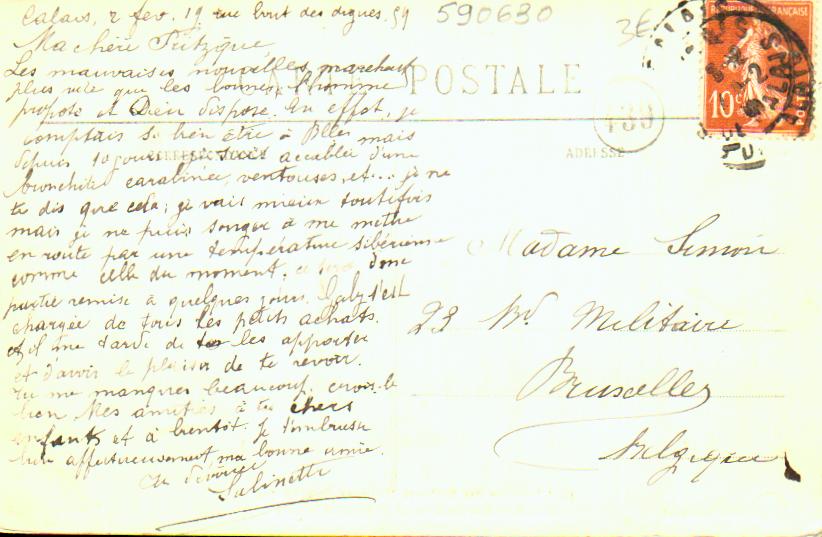 Calais, 2 fev. 19 rue bout des digues. 59
590630
3€
Ma chère
Les mauvaises nouvelles marchent
plus vite que les bonnes, l'homme
propose et Dieu dispose. En effet, je
comptais si bien être à Blles mais
depuis 10 jours je suis accablée d'une
bronchite carabinée, ventouses, et... je ne
te dis que cela; je vais mieux toutefois
mais je ne puis songer à me mettre
en route par une température sibérienne
comme celle du moment. ce sera donc
partie remise à quelques jours. Gaby s'est
chargée de tous les petits achats.
et il me tarde de te les apporter
et d'avoir le plaisir de te revoir.
Tu me manques beaucoup. crois-le
bien Mes amitiés à tes chers
enfants et à bientôt. Je t'embrasse
bien affectueusement ma bonne amie.
POSTALE
ADRESSE
439
RÉPUBLIQUE FRANÇAISE
10c
CALAIS
Madame Simon
23 Bd. Militaire
Bruxelles
Belgique